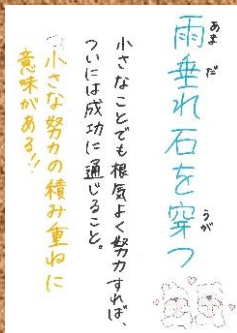 雨垂れ石を穿つ
あまだ
うが
小さなことでも根気よく努力すれば、
ついには成功に通じること。
小さな努力の積み重ねに
意味がある!!